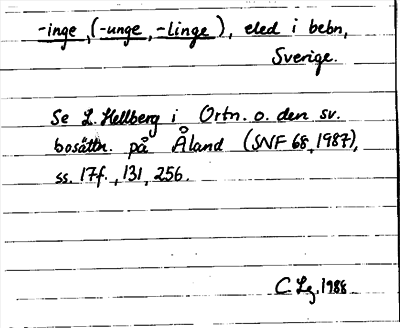 -inge, (-unge, -linge), eled i bebn,
Sverige.
Se L. Hellberg i Ortn. o. den sv.
bosättn. på Åland (SNF 68, 1987),
ss. 17f., 131, 256.
C Lg. 1988